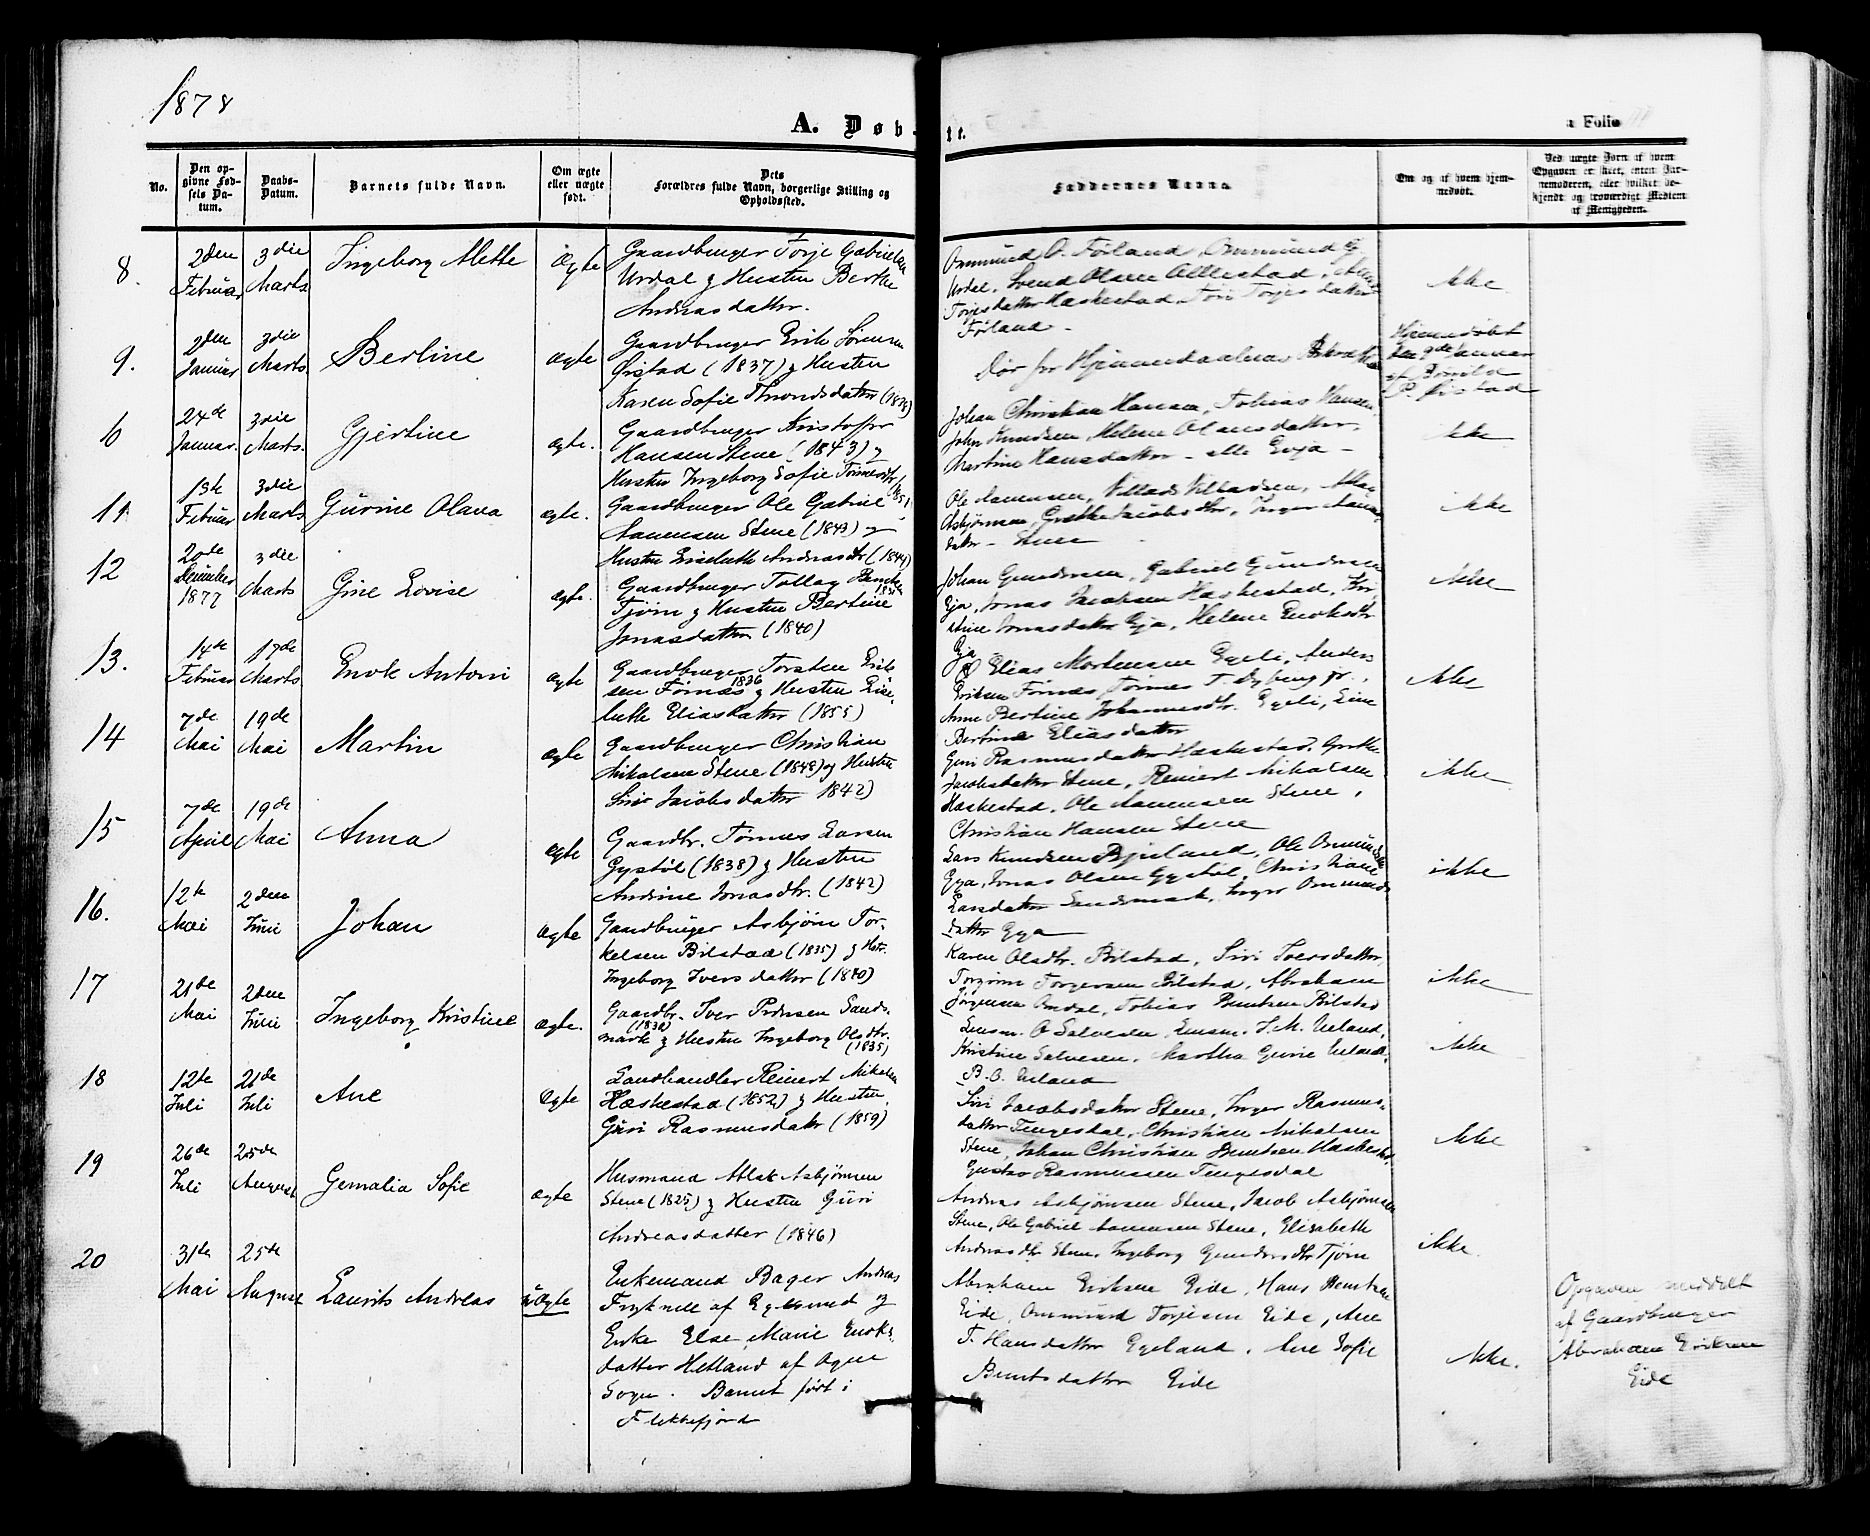 1878
A. Døb-
te.
a Folio
No.
Den op-
givne Fød-
sels Da-
tum.
Daabs-
Datum.
Barnets fulde Navn.
Om ægte
eller uægte
født.
Dets
Forældres fulde Navn, borgerlige Stilling og
Opholdssted.
Faddernes Navne.
Om og af hvem hjem-
medøbt.
Ved uægte Børn af hvem
Opgaven er skeet, enten Bar-
nemoderen, eller hvilket be-
kjendt og troværdigt Medlem
af Menigheden.
8.
2den
Februar
3die
Marts
Ingeborg Mette
Ægte
Gaardbruger Torje Gabrielsen
Urdal g Hustru Berthe
Andreasdatter.
Ommund O. Føland, Ommund G
Urdal, Svend Olsen Allestad,
Torjesdatter Hæskestad, Torjesdatter
Føland
Ikke
9.
2den
Januar
3die
Marts
Berline
ægte
Gaardbruger Erik Sørensen
Ørstad (1837) g Hustru
Karen Sofie Thronsdatter (1838)
Dør før Hjemmedaabens
Hjemmedøbt
den 9de Januar
af
P. Ørstad
6
24de
Januar.
3die
Marts.
Gjertine
ægte.
Gaardbruger Kristofer
Hansen Stene (1843) g
Hustru Ingeborg Sofie Tønnesdtr
Johan Christian Hansen, Tobias Hansen,
John Knudsen, Helene Olausdatter,
Martine Hansdatter - alle Evja -
ikke
11.
13de
Februar
3die
Marts
Gurine Olava
ægte.
Gaardbruger Ole Gabriel
Aanensen Stene (1843) g
Hustru Lisebeth Andreasdtr (1844)
Ole Aanensen, Villads Villadsen,
Asbjørnsen, Grethe Jacobsdtr, Inger
datter - Stene
ikke
12
20de
December
1877
3die
Marts
Gine Lovise
ægte.
Gaardbruger Tollag
Tjørn g Hustru Bertine
Jonasdatter (1840)
Johan Gundersen, Gabriel Gundersen
Eja, Jonas Jacobsen Hæskestad, Kri-
stine Jonasdatter Eja, Helene Enoksdtr
Eja
ikke
13.
14de
Februar
17de
Marts
Enok Antoni
ægte
Gaardbruger Torsten Erik-
sen Fønæs 1836 g Hustru Lise-
beth Eliasdatter (1855)
Elias Mortensen Egeli, Anders
Eriksen Fønæs, Tønnes T. Dybing jr.,
Anne Bertine Johannesdtr. Egeli, Line
Bertine Eliasdatter
ikke
14
7de
Mai
19de
Mai
Martin
ægte
Gaardbruger Christian
Mikalsen Stene (1848) g Hustru
Siri Jacobsdatter 1842)
Guri Rasmusdatter Hæskestad, Grethe
Jacobsdatter Stene, Reinert Mikalsen
Hæskestad, Ole Aanensen Stene,
Christian Hansen Stene
ikke
15
7de
April
19de
Mai
Anna
ægte
Gaardbr. Tønnes Larsen
Gystøl (1838) g Hustru
Andrine Jonasdtr. (1842)
Lars Knudsen Bjuland, Ole Ommundsen
Gya, Jonas Olsen Gystøl, Christiane
Larsdatter Sandsmark, Inger Ommunds-
datter Gya
ikke
16.
12te
Mai
2den
Juni
Johan
Ægte
Gaardbruger Asbjørn Tor-
kelsen Bilstad (1835) g Hstr.
Ingeborg Iversdatter (1840)
Karen Olsdtr. Bilstad, Siri Iversdatter,
Torgrim Torgersen Bilstad, Abraham
Jørgensen Omdal, Tobias Bentsen Bilstad
ikke
17
21de
Mai
2den
Juni
Ingeborg Kristine
Ægte.
Gaardbr. Iver Pedersen Sands-
(1830)
mark g Hustru Ingeborg Olsdtr.
(1835)
Lensm. O Salvesen, Lensm. S. M. Ueland,
Kristine Salvesen, Martha Gurie Ueland,
B. O. Ueland
ikke
18
12te
Juli
21de
Juli
Ane
Ægte
Landhandler Reinert Mikalsen
Hæskestad (1852) g Hustru
Guri Rasmusdatr (1859)
Siri Jacobsdatter Stene, Inger Rasmus-
datter Tengesdal, Christian Mikalsen
Stene, Johan Christian Bentsen Hæskestad,
Gustav Rasmussen Tengesdal
ikke
19
26de
Juli
25de
August
Gemalia Sofie
Ægte
Husmand Aslak Asbjørnsen
Stene (1825) g Hustru Guri
Andreasdatter (1846)
Andreas Asbjørnsen Stene, Jacob Asbjørnsen
Stene, Ole Gabriel Aanensen Stene, Elisabeth
Andreasdtr Stene, Ingeborg Gundersdtr Tjørn
ikke.
20
31te
Mai
25de
August
Laurits Andreas
uÆgte
Enkemand Bager Andreas
af Egersund og
Enke Else Marie Enoks-
datter Hetland af Ogne
Sogn. Barnet født i
Flekkefjord
Abraham Eriksen Eide, Hans Bentsen
Eide, Ommund Torjesen Eide, Ane
T. Hansdatter Egeland, Ane Sofie
Bentsdatter Eide
Ikke.
Opgaven meddelt
af Gaardbruger
Abraham Eriksen
Eide